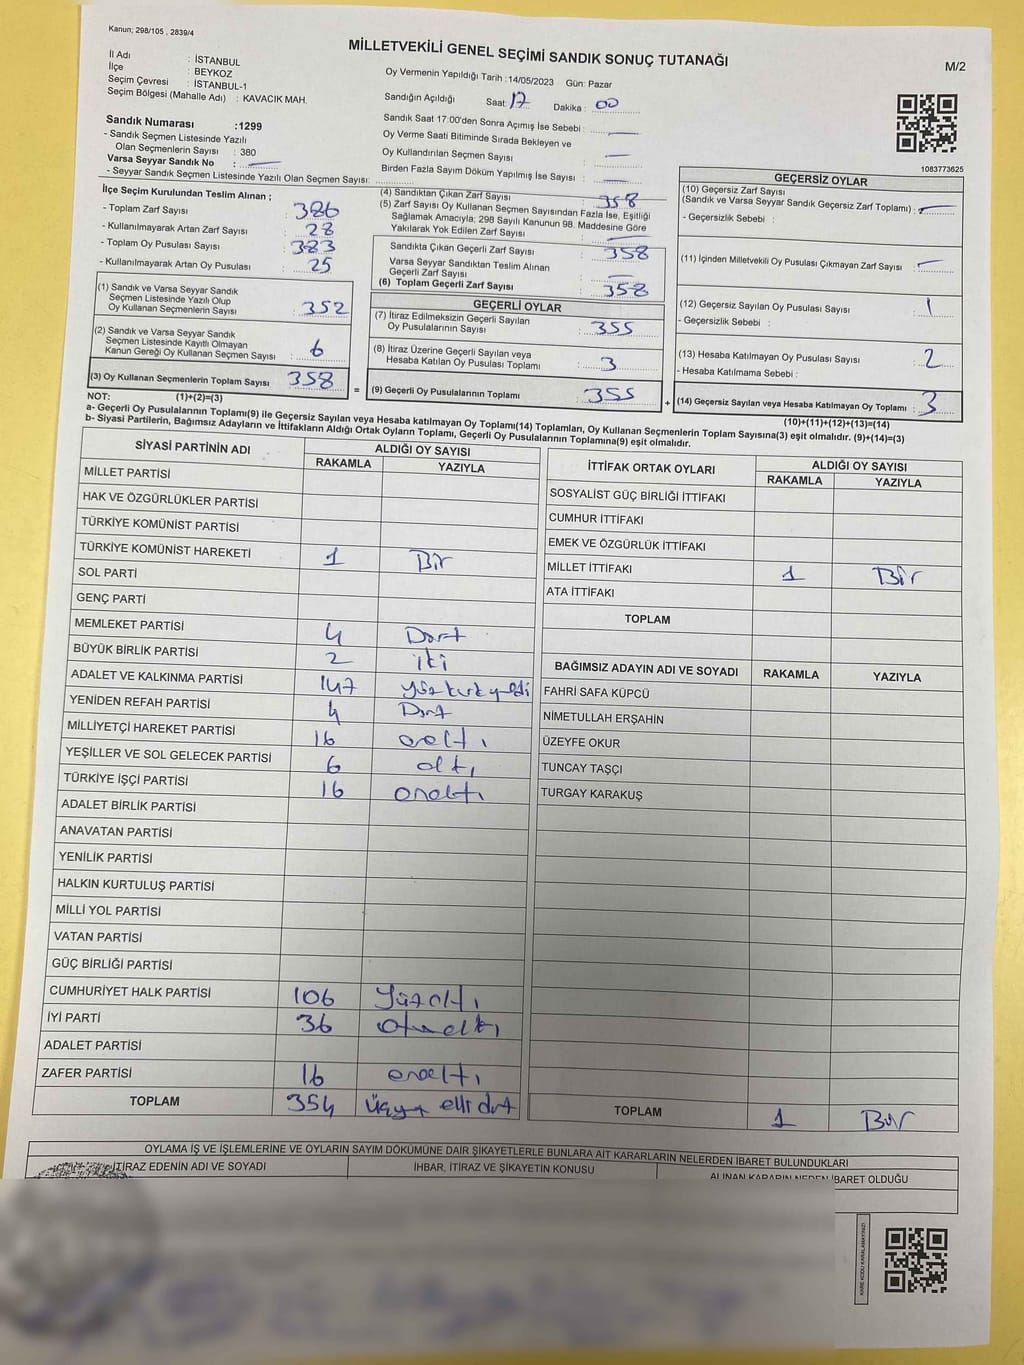 Kanun; 298/105 , 2839/4
MİLLETVEKİLİ GENEL SEÇİMİ SANDIK SONUÇ TUTANAĞI
M/2
İl Adı : İSTANBUL
İlçe : BEYKOZ
Seçim Çevresi : İSTANBUL-1
Seçim Bölgesi (Mahalle Adı) : KAVACIK MAH.
Oy Vermenin Yapıldığı Tarih :14/05/2023 Gün: Pazar
Sandığın Açıldığı Saat: 17 Dakika : 00
Sandık Saat 17:00'den Sonra Açımış İse Sebebi : —
Oy Verme Saati Bitiminde Sırada Bekleyen ve
Oy Kullandırılan Seçmen Sayısı : —
Birden Fazla Sayım Döküm Yapılmış İse Sayısı : —
Sandık Numarası :1299
- Sandık Seçmen Listesinde Yazılı
Olan Seçmenlerin Sayısı : 380
Varsa Seyyar Sandık No : —
- Seyyar Sandık Seçmen Listesinde Yazılı Olan Seçmen Sayısı:
1083773625
İlçe Seçim Kurulundan Teslim Alınan ;
- Toplam Zarf Sayısı : 386
- Kullanılmayarak Artan Zarf Sayısı : 28
- Toplam Oy Pusulası Sayısı : 383
- Kullanılmayarak Artan Oy Pusulası : 25
(1) Sandık ve Varsa Seyyar Sandık
Seçmen Listesinde Yazılı Olup
Oy Kullanan Seçmenlerin Sayısı : 352
(2) Sandık ve Varsa Seyyar Sandık
Seçmen Listesinde Kayıtlı Olmayan
Kanun Gereği Oy Kullanan Seçmen Sayısı : 6
(3) Oy Kullanan Seçmenlerin Toplam Sayısı 358
(1)+(2)=(3)
(4) Sandıktan Çıkan Zarf Sayısı : 358
(5) Zarf Sayısı Oy Kullanan Seçmen Sayısından Fazla İse, Eşitliği
Sağlamak Amacıyla; 298 Sayılı Kanunun 98. Maddesine Göre
Yakılarak Yok Edilen Zarf Sayısı : —
Sandıkta Çıkan Geçerli Zarf Sayısı : 358
Varsa Seyyar Sandıktan Teslim Alınan
Geçerli Zarf Sayısı : —
(6) Toplam Geçerli Zarf Sayısı : 358
GEÇERLİ OYLAR
(7) İtiraz Edilmeksizin Geçerli Sayılan
Oy Pusulalarının Sayısı : 355
(8) İtiraz Üzerine Geçerli Sayılan veya
Hesaba Katılan Oy Pusulası Toplamı : 3
= (9) Geçerli Oy Pusulalarının Toplamı : 355
GEÇERSİZ OYLAR
(10) Geçersiz Zarf Sayısı
(Sandık ve Varsa Seyyar Sandık Geçersiz Zarf Toplamı) : —
- Geçersizlik Sebebi :
(11) İçinden Milletvekili Oy Pusulası Çıkmayan Zarf Sayısı : —
(12) Geçersiz Sayılan Oy Pusulası Sayısı : 1
- Geçersizlik Sebebi :
(13) Hesaba Katılmayan Oy Pusulası Sayısı : 2
- Hesaba Katılmama Sebebi :
+ (14) Geçersiz Sayılan veya Hesaba Katılmayan Oy Toplamı : 3
(10)+(11)+(12)+(13)=(14)
NOT:
a- Geçerli Oy Pusulalarının Toplamı(9) ile Geçersiz Sayılan veya Hesaba katılmayan Oy Toplamı(14) Toplamları, Oy Kullanan Seçmenlerin Toplam Sayısına(3) eşit olmalıdır. (9)+(14)=(3)
b- Siyasi Partilerin, Bağımsız Adayların ve İttifakların Aldığı Ortak Oyların Toplamı, Geçerli Oy Pusulalarının Toplamına(9) eşit olmalıdır.
SİYASİ PARTİNİN ADI ALDIĞI OY SAYISI
RAKAMLA YAZIYLA
MİLLET PARTİSİ
HAK VE ÖZGÜRLÜKLER PARTİSİ
TÜRKİYE KOMÜNİST PARTİSİ
TÜRKİYE KOMÜNİST HAREKETİ 1 Bir
SOL PARTİ
GENÇ PARTİ
MEMLEKET PARTİSİ 4 Dört
BÜYÜK BİRLİK PARTİSİ 2 iki
ADALET VE KALKINMA PARTİSİ 147 yüzkırkyedi
YENİDEN REFAH PARTİSİ 4 Dört
MİLLİYETÇİ HAREKET PARTİSİ 16 onaltı
YEŞİLLER VE SOL GELECEK PARTİSİ 6 altı
TÜRKİYE İŞÇİ PARTİSİ 16 onaltı
ADALET BİRLİK PARTİSİ
ANAVATAN PARTİSİ
YENİLİK PARTİSİ
HALKIN KURTULUŞ PARTİSİ
MİLLİ YOL PARTİSİ
VATAN PARTİSİ
GÜÇ BİRLİĞİ PARTİSİ
CUMHURİYET HALK PARTİSİ 106 Yüzaltı
İYİ PARTİ 36 otuzaltı
ADALET PARTİSİ
ZAFER PARTİSİ 16 onaltı
TOPLAM 354 üçyüz elli dört
İTTİFAK ORTAK OYLARI ALDIĞI OY SAYISI
RAKAMLA YAZIYLA
SOSYALİST GÜÇ BİRLİĞİ İTTİFAKI
CUMHUR İTTİFAKI
EMEK VE ÖZGÜRLÜK İTTİFAKI
MİLLET İTTİFAKI 1 Bir
ATA İTTİFAKI
TOPLAM
BAĞIMSIZ ADAYIN ADI VE SOYADI RAKAMLA YAZIYLA
FAHRİ SAFA KÜPCÜ
NİMETULLAH ERŞAHİN
ÜZEYFE OKUR
TUNCAY TAŞÇI
TURGAY KARAKUŞ
TOPLAM 1 Bir
OYLAMA İŞ VE İŞLEMLERİNE VE OYLARIN SAYIM DÖKÜMÜNE DAİR ŞİKAYETLERLE BUNLARA AİT KARARLARIN NELERDEN İBARET BULUNDUKLARI
İTİRAZ EDENİN ADI VE SOYADI İHBAR, İTİRAZ VE ŞİKAYETİN KONUSU ALINAN KARARIN NEDEN İBARET OLDUĞU
KARE KODU KARALAMAYINIZ!